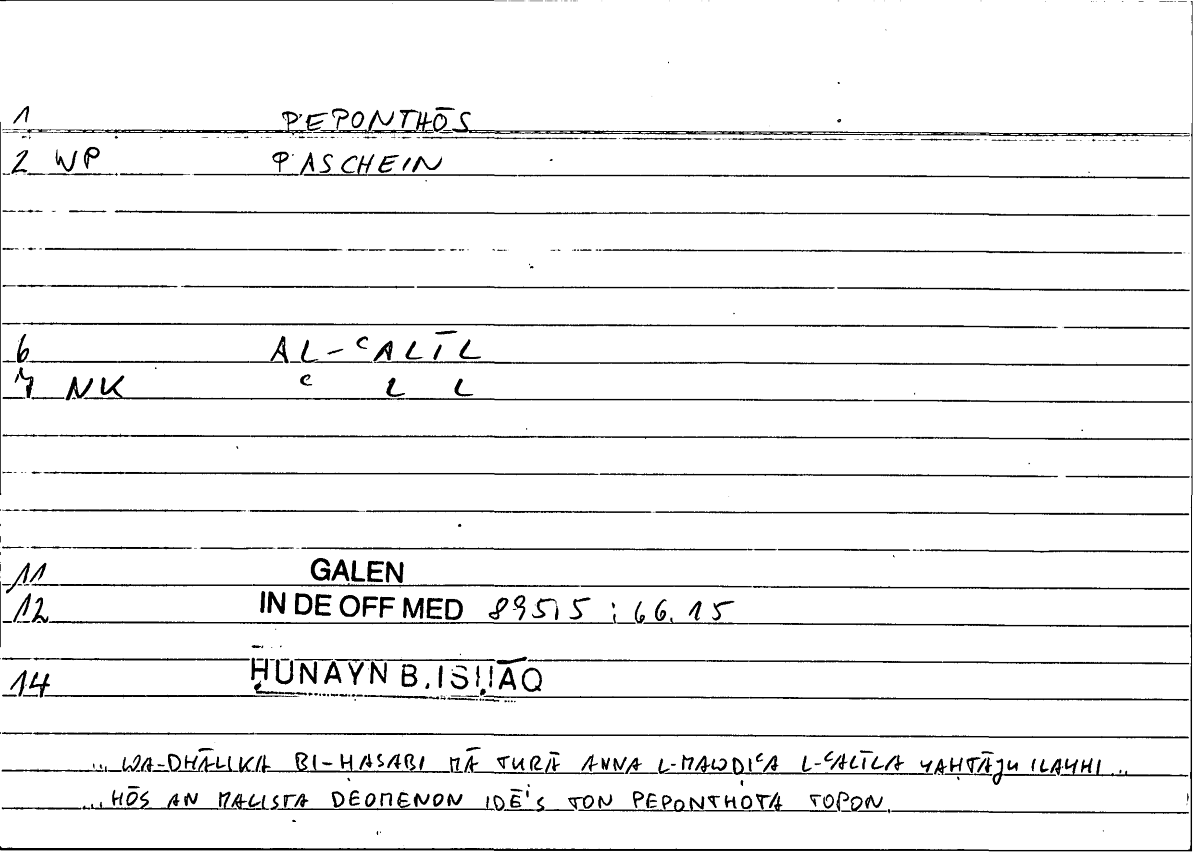 1 PEPONTHŌS
2 WP PASCHEIN
6 AL-ᶜALĪL
7 NK ᶜ L L
11 GALEN
12 IN DE OFF MED 895,5 ; 66.15
14 ḤUNAYN B. ISḤĀQ
... WA-DHĀLIKA BI-HASABI MĀ TURĀ ANNA L-MAWDIᶜA L-ᶜALĪLA YAHTĀJU ILAYHI ..
... HŌS AN MALISTA DEOMENON IDĒ'S TON PEPONTHOTA TOPON.